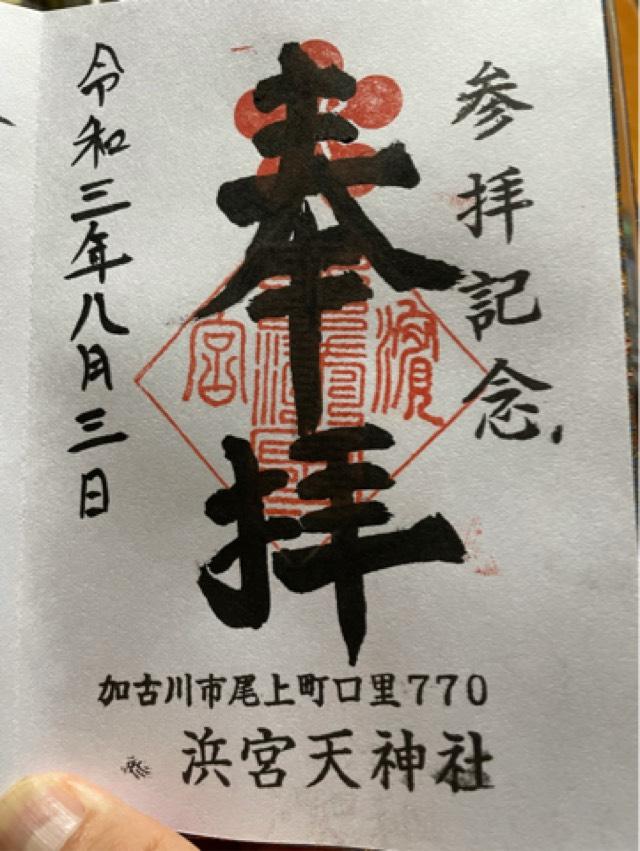 参拝記念
奉拝
令和三年八月三日
加古川市尾上町口里770
浜宮天神社